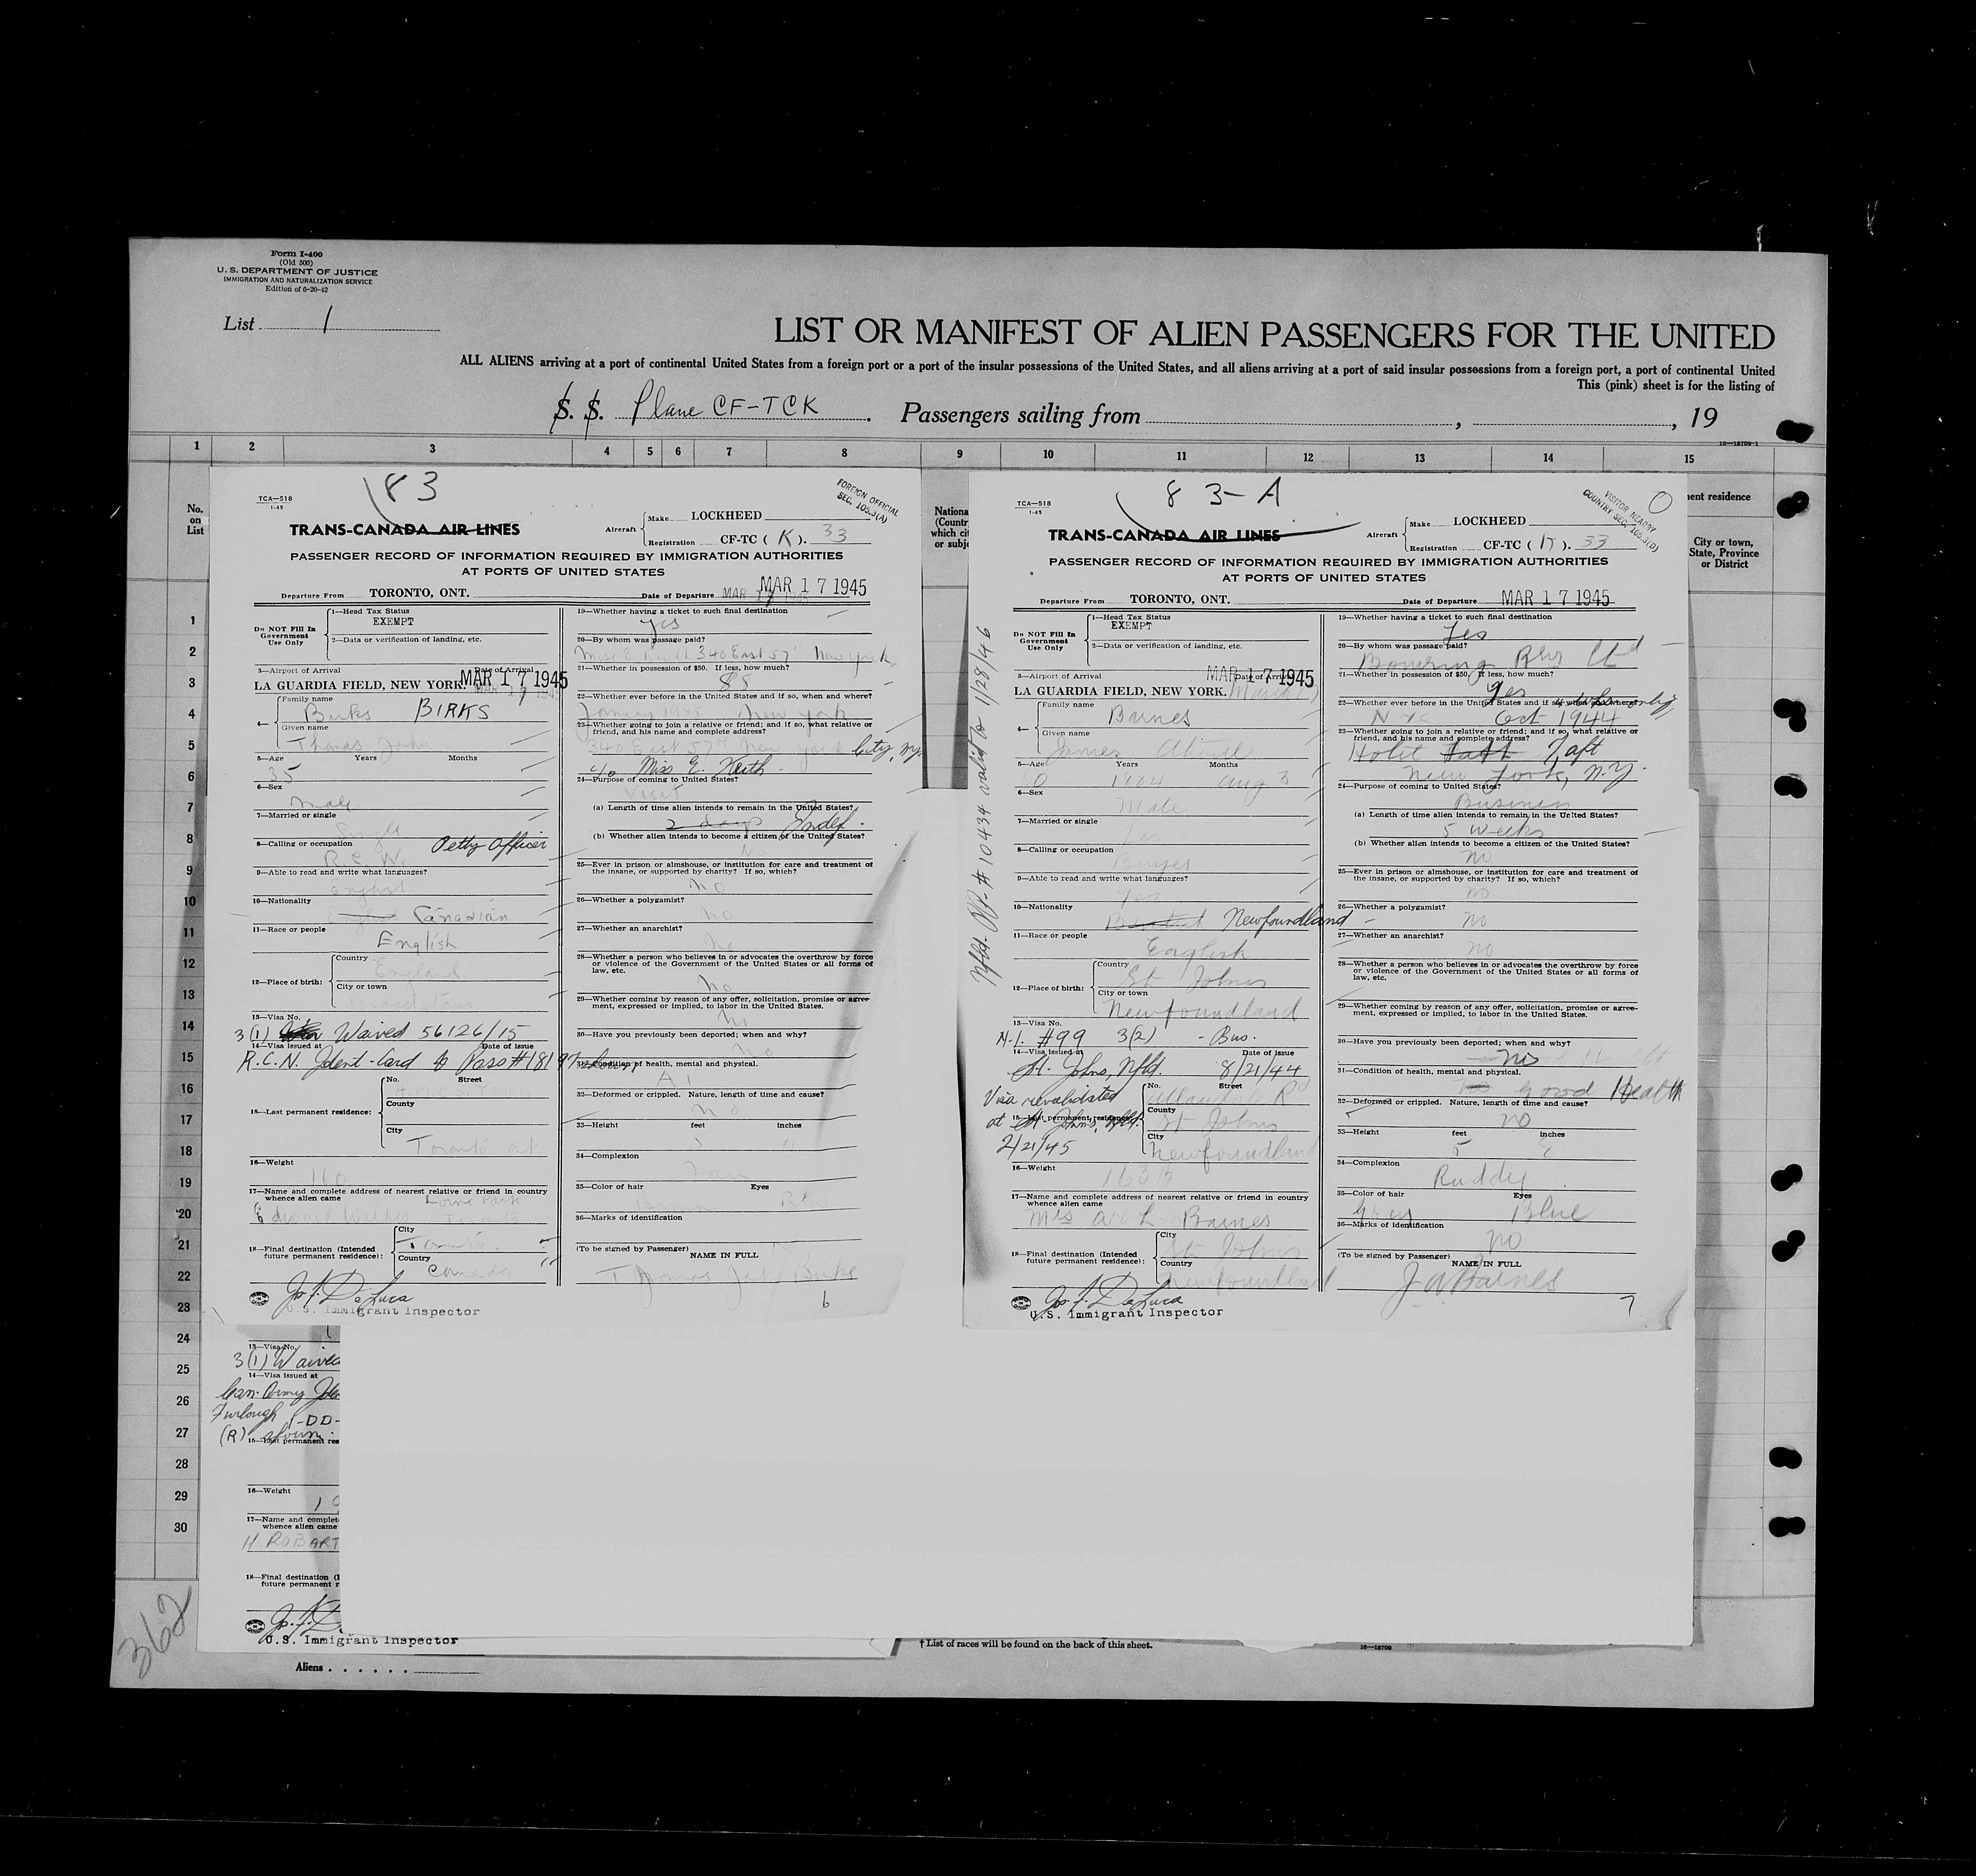 Form I-400
(Old 500)
U. S. DEPARTMENT OF JUSTICE
IMMIGRATION AND NATURALIZATION SERVICE
Edition of 6-20-42
List 1
LIST OR MANIFEST OF ALIEN PASSENGERS FOR THE UNITED
ALL ALIENS arriving at a port of continental United States from a foreign port or a port of the insular possessions of the United States, and all aliens arriving at a port of said insular possessions from a foreign port, a port of continental United
This (pink) sheet is for the listing of
S. S. Plane CF-TCK. Passengers sailing from , , 19
16—18709-1
1 2 3 4 5 6 7 8 9 10 11 12 13 14 15
No.
on
List
1
2
3
4
5
6
7
8
9
10
11
12
13
14
15
16
17
18
19
20
21
22
23
24
25
26
27
28
29
30
83
TCA—518
1-45
FOREIGN OFFICIAL
SEC. 105.3(A)
TRANS-CANADA AIR LINES
Aircraft
Make LOCKHEED
Registration CF-TC ( K ). 33
PASSENGER RECORD OF INFORMATION REQUIRED BY IMMIGRATION AUTHORITIES
AT PORTS OF UNITED STATES
Departure From TORONTO, ONT. Date of Departure MAR 17 1945
Do NOT Fill In
Government
Use Only
1—Head Tax Status
EXEMPT
2—Data or verification of landing, etc.
3—Airport of Arrival Date of Arrival
LA GUARDIA FIELD, NEW YORK. MAR 17 1945
4—
Family name
Birks BIRKS
Given name
Thomas John
5—Age Years Months
35
6—Sex
Male
7—Married or single
Single
8—Calling or occupation Petty Officer
R.C.N.
9—Able to read and write what languages?
English
10—Nationality
English Canadian
11—Race or people
English
12—Place of birth:
Country
England
City or town
13—Visa No.
3(1) Waived 56126/15
14—Visa issued at Date of issue
R.C.N. Ident-Card & Pass #18197 shown
15—Last permanent residence:
No. Street
County
City
Toronto ont
16—Weight
160
17—Name and complete address of nearest relative or friend in country
whence alien came
18—Final destination (Intended
future permanent residence):
City
Toronto
Country
Canada
Jos. F. DeLuca
U.S. Immigrant Inspector
19—Whether having a ticket to such final destination
Yes
20—By whom was passage paid?
340 East 57th New York
21—Whether in possession of $50. If less, how much?
85
22—Whether ever before in the United States and if so, when and where?
January 1945 New York
23—Whether going to join a relative or friend; and if so, what relative or
friend, and his name and complete address?
340 East 57th New York City, NY
c/o Miss E. Keith
24—Purpose of coming to United States?
Visit
(a) Length of time alien intends to remain in the United States?
2 days Indef.
(b) Whether alien intends to become a citizen of the United States?
No
25—Ever in prison or almshouse, or institution for care and treatment of
the insane, or supported by charity? If so, which?
No
26—Whether a polygamist?
No
27—Whether an anarchist?
No
28—Whether a person who believes in or advocates the overthrow by force
or violence of the Government of the United States or all forms of
law, etc.
No
29—Whether coming by reason of any offer, solicitation, promise or agree-
ment, expressed or implied, to labor in the United States.
No
30—Have you previously been deported; when and why?
No
31—Condition of health, mental and physical.
A1
32—Deformed or crippled. Nature, length of time and cause?
No
33—Height feet inches
5
34—Complexion
Fair
35—Color of hair Eyes
36—Marks of identification
(To be signed by Passenger) NAME IN FULL
Thomas John Birks
6
Nationa
(Countr
which cit
or subje
83-A
TCA—518
1-45
VISITOR NEARBY
COUNTRY SEC. 105.3(D)
TRANS-CANADA AIR LINES
Aircraft
Make LOCKHEED
Registration CF-TC ( K ). 33
PASSENGER RECORD OF INFORMATION REQUIRED BY IMMIGRATION AUTHORITIES
AT PORTS OF UNITED STATES
Departure From TORONTO, ONT. Date of Departure MAR 17 1945
Nfld. PP. # 10434 valid to 1/28/46
Do NOT Fill In
Government
Use Only
1—Head Tax Status
EXEMPT
2—Data or verification of landing, etc.
3—Airport of Arrival Date of Arrival
LA GUARDIA FIELD, NEW YORK. MAR 17 1945
4—
Family name
Barnes
Given name
James
5—Age Years Months
1884 Aug 3
6—Sex
Male
7—Married or single
Yes
8—Calling or occupation
Buyer
9—Able to read and write what languages?
Yes
10—Nationality
British Newfoundland
11—Race or people
English
12—Place of birth:
Country
St Johns
City or town
Newfoundland
13—Visa No.
N.I. #99 3(2) - Bus.
14—Visa issued at Date of issue
St. Johns, Nfld. 8/21/44
Visa revalidated
at St. Johns, Nfld.
2/21/45
15—Last permanent residence:
No. Street
County
St Johns
City
Newfoundland
16—Weight
163
17—Name and complete address of nearest relative or friend in country
whence alien came
Mrs Barnes
18—Final destination (Intended
future permanent residence):
City
St Johns
Country
Newfoundland
Jos. F. DeLuca
U.S. Immigrant Inspector
19—Whether having a ticket to such final destination
Yes
20—By whom was passage paid?
Bowring Bros Ltd
21—Whether in possession of $50. If less, how much?
Yes
22—Whether ever before in the United States and if so, when and where?
Oct 1944
23—Whether going to join a relative or friend; and if so, what relative or
friend, and his name and complete address?
Hotel Taft Taft
New York, N.Y.
24—Purpose of coming to United States?
Business
(a) Length of time alien intends to remain in the United States?
5 weeks
(b) Whether alien intends to become a citizen of the United States?
No
25—Ever in prison or almshouse, or institution for care and treatment of
the insane, or supported by charity? If so, which?
No
26—Whether a polygamist?
No
27—Whether an anarchist?
No
28—Whether a person who believes in or advocates the overthrow by force
or violence of the Government of the United States or all forms of
law, etc.
29—Whether coming by reason of any offer, solicitation, promise or agree-
ment, expressed or implied, to labor in the United States.
30—Have you previously been deported; when and why?
No
31—Condition of health, mental and physical.
Good Health
32—Deformed or crippled. Nature, length of time and cause?
No
33—Height feet inches
5
34—Complexion
Ruddy
35—Color of hair Eyes
Grey Blue
36—Marks of identification
No
(To be signed by Passenger) NAME IN FULL
J A Barnes
7
ent residence
City or town,
State, Province
or District
13—Visa No.
3(1) Waived
14—Visa issued at
Can. Army Iden
Furlough 1-DD-
(R) shown.
15—Last permanent res
16—Weight
17—Name and complet
whence alien came
H. ROBART
18—Final destination (I
future permanent r
U.S. Immigrant Inspector
Aliens
† List of races will be found on the back of this sheet.
16—18709
362